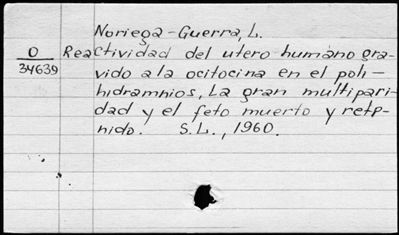 Noriega-Guerra, L.
O Reactividad del utero humano gra-
34639 vido a la ocitocina en el poli-
hidramnios, La gran multipari
dad y el feto muerto y rete-
nido. S.L., 1960.